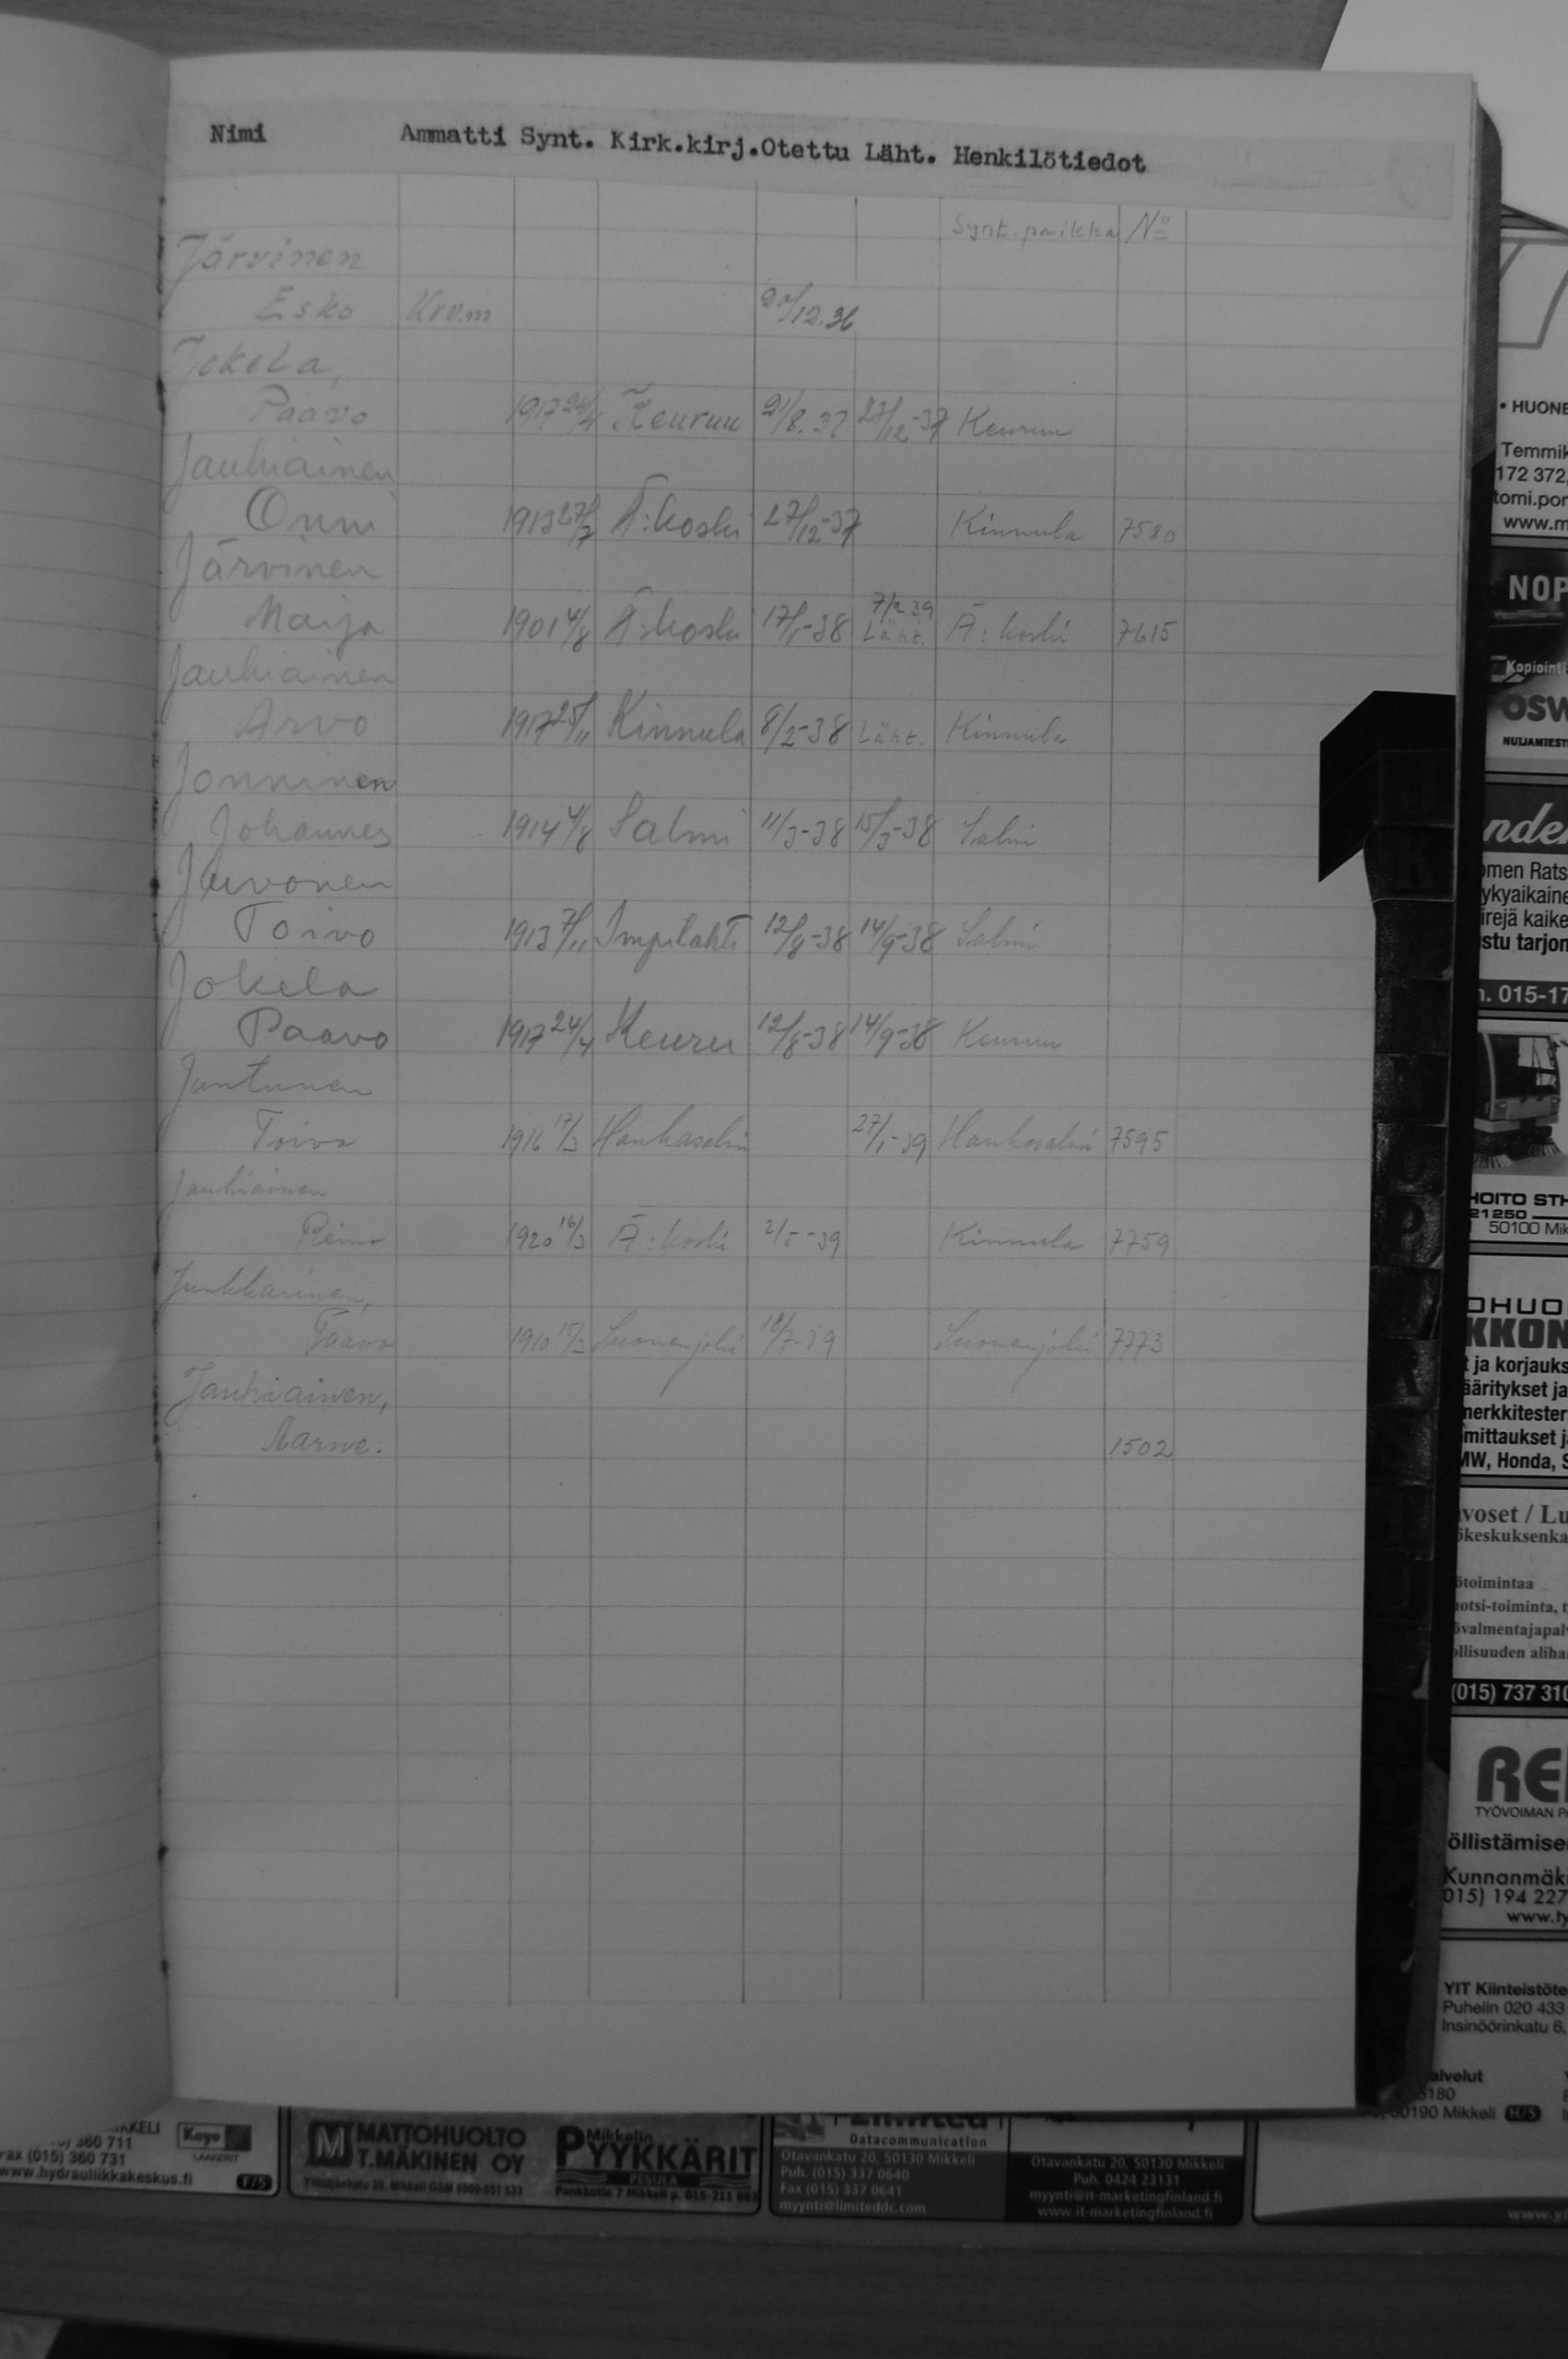 Nimi Ammatti Synt. Kirk.kirj. Otettu Läht. Henkilötiedot
Synt. paikka No
Järvinen
Esko 20/12.36
Jokela,
Paavo 1917 24/4 Keuruu 21/8.37 27/12-37 Keuruu
Jauhiainen
Onni 1913 27/7 Ä:koski 27/12-37 Kinnula 7580
Järvinen
Maija 1901 4/8 Ä:koski 17/1-38 7/2 39 Läht. Ä:koski 7615
Jauhiainen
Arvo 1917 25/11 Kinnula 8/2-38 Läht. Kinnula
Jonninen
Johannes 1914 4/8 Salmi 11/3-38 15/3-38 Salmi
Juvonen
Toivo 1913 7/11 Impilahti 12/8-38 14/9-38 Salmi
Jokela
Paavo 1917 24/4 Keuru 12/8-38 14/9-38 Keuruu
Juntunen
Toivo 1916 17/3 Hankasalmi 27/1-39 Hankasalmi 7595
Jauhiainen
Reino 1920 16/3 Ä:koski 2/5-39 Kinnula 7759
Junkkarinen,
Taavo 1910 15/3 Suonenjoki 18/7-39 Suonenjoki 7773
Jauhiainen,
Aarne. 1502
• HUONE
Temmik
172 372,
tomi.por
www.m
NOP
Kopiointi
OSW
NUIJAMIEST
nde
omen Rats
ykyaikaine
irejä kaike
stu tarjon
. 015-17
HOITO STH
21250
50100 Mik
OHUO
KKON
t ja korjauks
ääritykset ja
merkkitester
mittaukset j
MW, Honda, S
voset / Lu
ökeskuksenka
ötoimintaa
otsi-toiminta, t
övalmentajapal
ollisuuden aliha
(015) 737 310
RE
TYÖVOIMAN P
öllistämise
Kunnanmäk
015) 194 227
www.ty
YIT Kiinteistöte
Puhelin 020 433
Insinöörinkatu 6,
alvelut
5180
50190 Mikkeli H/5
KELI
360 711
ax (015) 360 731
www.hydrauliikkakeskus.fi
Koyo
LAAKERIT
F/5
M MATTOHUOLTO
T.MÄKINEN OY
Mikkelin
PYYKKÄRIT
PESULA
Pankkotie 7 Mikkeli p. 015-211 883
Limited
Datacommunication
Otavankatu 20, 50130 Mikkeli
Puh. (015) 337 0640
Fax (015) 337 0641
myynti@limiteddc.com
Otavankatu 20, 50130 Mikkeli
Puh. 0424 23131
myynti@it-marketingfinland.fi
www.it-marketingfinland.fi